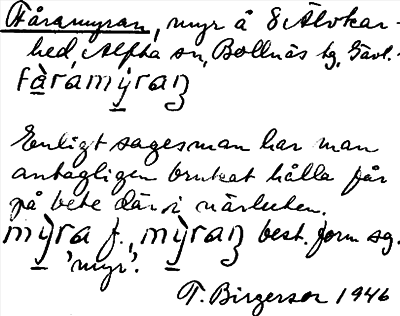 Fåramyran, myr å S. Älvkar-
hed, Alfta sn, Bollnäs tg, Gävl.
fàramỳraŋ
Enligt sagesman har man
antagligen brukat hålla får
på bete där i närheten.
mỳra f., mỳraŋ best. form sg.
'myr'.
T. Birgersson 1946